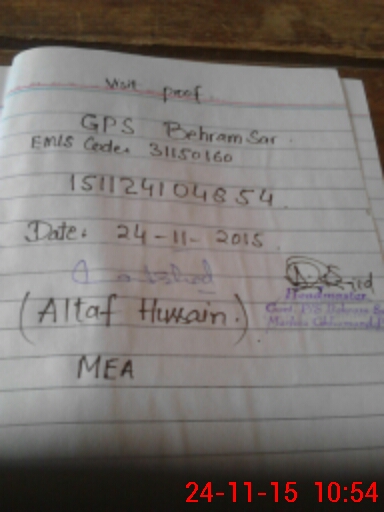 Visit proof.
GPS Behram Sar.
EMIS Code. 31150160
151124104854
Date. 24-11-2015
(Altaf Hussain.)
Headmaster
MEA
24-11-15 10:54